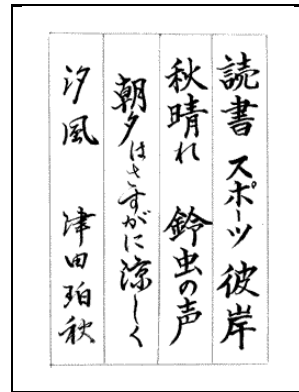 読書 スポーツ 彼岸
秋晴れ 鈴虫の声
朝夕はさすがに涼しく
汐風 津田珀秋